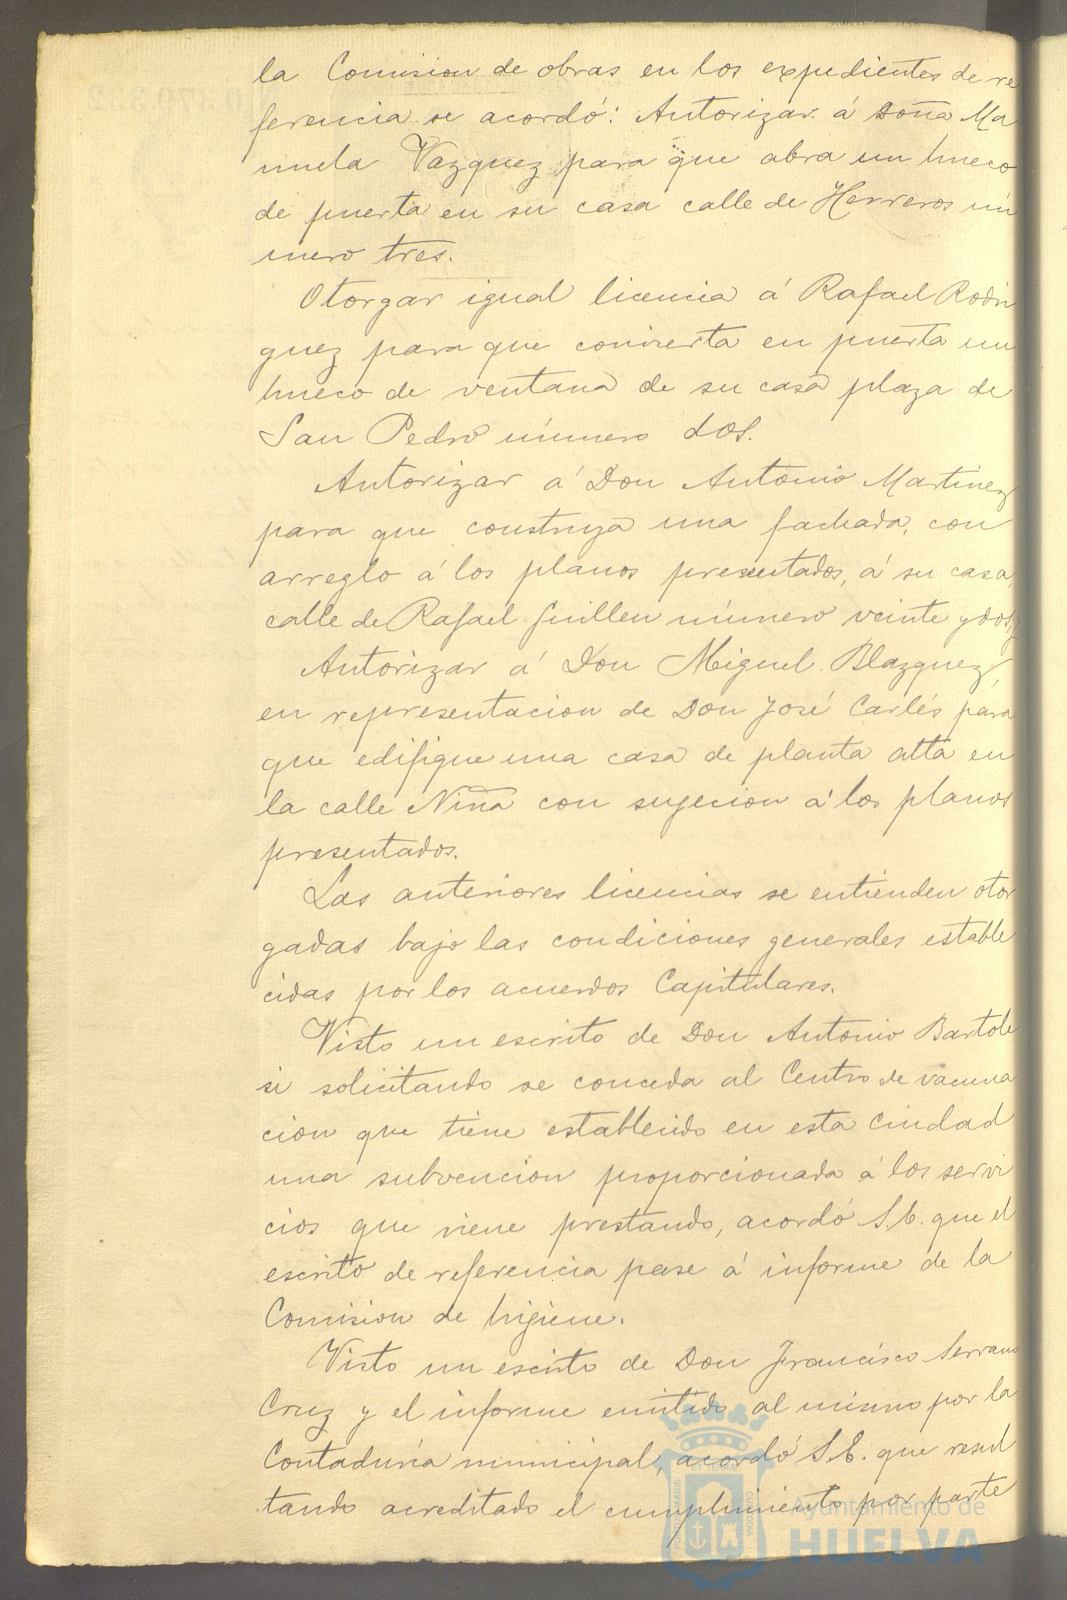 la Comision de obras en los expedientes de re
ferencia se acordó: Autorizar á Doña Ma
nuela Vazquez para que abra un hueco
de puerta en su casa calle de Herreros nú
mero tres.
Otorgar igual licencia á Rafael Rodri
guez para que convierta en puerta un
hueco de ventana de su casa plaza de
San Pedro número dos.
Autorizar á Don Antonio Martinez
para que construya una fachada, con
arreglo á los planos presentados, á su casa
calle de Rafael Guillen número veinte y dos,
Autorizar á Don Miguel Blazquez,
en representacion de Don José Carlés para
que edifique una casa de planta alta en
la calle Niña con sugecion á los planos
presentados.
Las anteriores licencias se entienden otor
gadas bajo las condiciones generales estable
cidas por los acuerdos Capitulares.
Visto un escrito de Don Antonio Bartole
si solicitando se conceda al Centro de vacuna
cion que tiene establecido en esta Ciudad
una subvencion proporcionada á los servi
cios que viene prestando, acordó S.E. que el
escrito de referencia pase á informe de la
Comision de higiene.
Visto un escrito de Don Francisco Serrano
Cruz y el informe emitido al mismo por la
Contaduría municipal, acordó S.E. que resul
tando acreditado el cumplimiento por parte
Ayuntamiento de
HUELVA